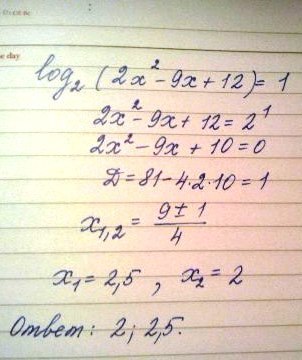 e day
log₂(2x² - 9x + 12) = 1
2x² - 9x + 12 = 2¹
2x² - 9x + 10 = 0
D = 81 - 4·2·10 = 1
x₁,₂ = (9 ± 1)/4
x₁ = 2,5 , x₂ = 2
Ответ: 2; 2,5.